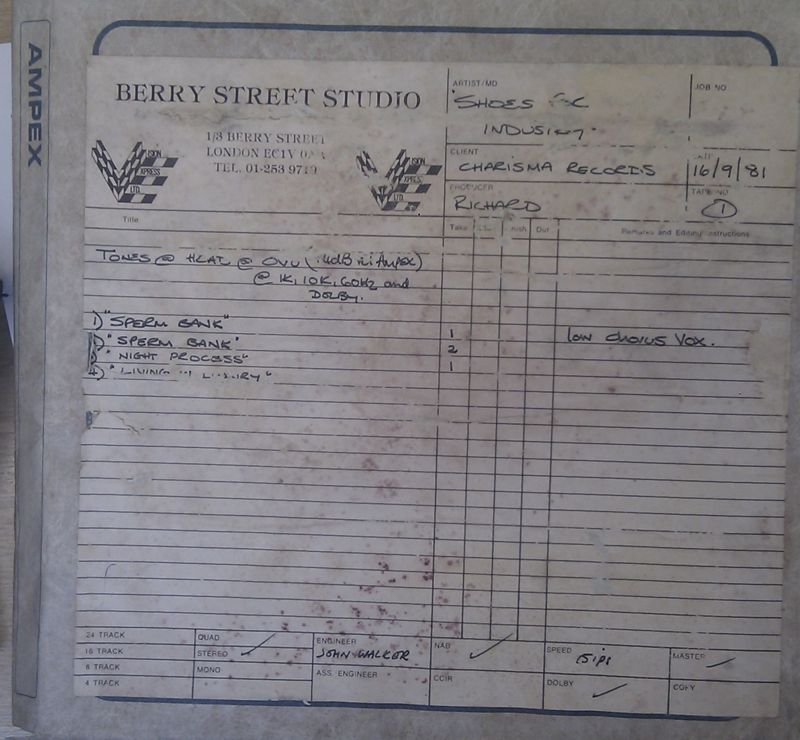 AMPEX
BERRY STREET STUDIO
1/3 BERRY STREET
LONDON EC1V
TEL. 01-253 9719
VISION
EXPRESS
LTD.
VISION
EXPRESS
LTD.
ARTIST/MD
"SHOES
JOB NO
CLIENT
CHARISMA RECORDS
DATE
16/9/81
PRODUCER
RICHARD
TAPE NO
1
Title
Take
Out
Remarks and Editing Instructions
TONES @ HEAD @ OVU (
@ 1K, 10K, 60Hz and
DOLBY.
1) "SPERM BANK" 1
"SPERM BANK" 2 low chorus Vox.
"NIGHT PROCESS" 1
4) "LIVING
24 TRACK
16 TRACK
8 TRACK
4 TRACK
QUAD
STEREO ✓
MONO
ENGINEER
JOHN WALKER
ASS. ENGINEER
NAB ✓
CCIR
SPEED 15ips
DOLBY ✓
MASTER ✓
COPY